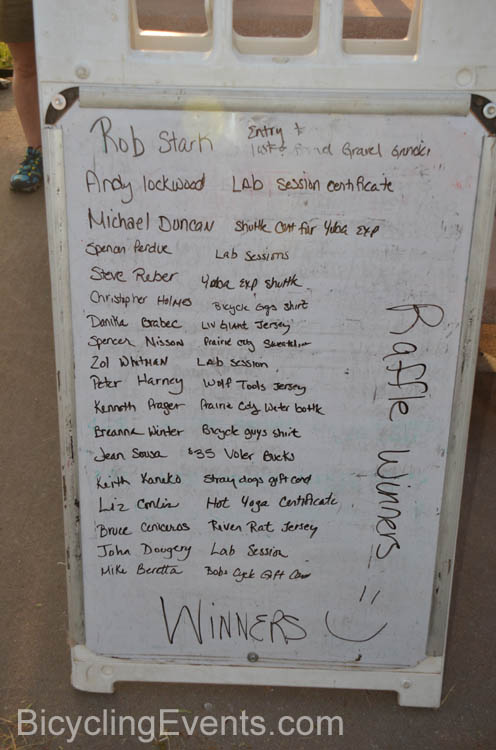 Rob Stark Entry &
Gravel Grinder
Andy lockwood LAb Session certificate
Michael Duncan Shuttle Cert for Yuba Exp
Spencer Perdue Lab Sessions
Steve Reber Yuba Exp Shuttle
Christopher Holmes Bicycle Guys Shirt
Danika Grabec Liv Giant Jersey
Spencer Nisson Prairie City
Zol Whitman LAB Session
Peter Harney Wolf Tools Jersey
Kenneth Prager Prairie City Water bottle
Breanna Winter Bicycle guys shirt
Jean Sousa $35 Voler Bucks
Keith Kaneko Stray dogs gift card
Liz Hot Yoga Certificate
Bruce Ceniceros River Rat Jersey
John Dougery Lab Session
Mike Beretta Bobs Cycle Gift Car
WINNERS
Raffle Winners
BicyclingEvents.com